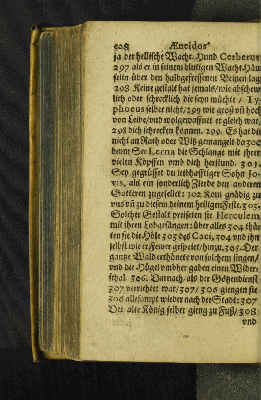 508 Æneidos
ja der hellische Wacht-Hund Cerberus
297 als er in seinem blutigen Wacht-Häu
selin über den halbgefressenen Beinen lag
298 Keine gestalt hat jemals/ wie abschew
lich oder schrecklich die seyn müchte / Ty
phoeus selber nicht/ 299 wie groß vñ hoch
von Leibe/ und wolgewaffnet er gleich war/
298 dich schrecken können. 299. Es hat dir
nicht an Rath oder Witz gemangelt da 300
beym See Lerna die Schlange mit ihren
vielen Köpffen vmb dich herstund. 301.
Sey gegrüsset du leibhafftiger Sohn Jo-
vis, als ein sonderlich Zierde den anderen
Göttern zugesellet: 302 Kom gnädig zu
vns vñ zu diesem deinem heiligen Feste. 303.
Solcher Gestalt preiseten sie Herculem
mit ihren Lobgesängen: über alles 304 thä
ten sie die Höle 303 des Caci, 304 und ihn
selbst wie er Feuer gespeiet/ hinzu. 305. Der
gantze Wald erthönete von solchem singen/
vnd die Hügel vmbher gaben einen Wider-
schal. 306. Darnach/ als der Götzendienst
307 verrichtet war/ 307/ 306 giengen sie
306 allesampt wieder nach der Stadt: 307
Der alte König selber gieng zu Fuß/ 308
vnd